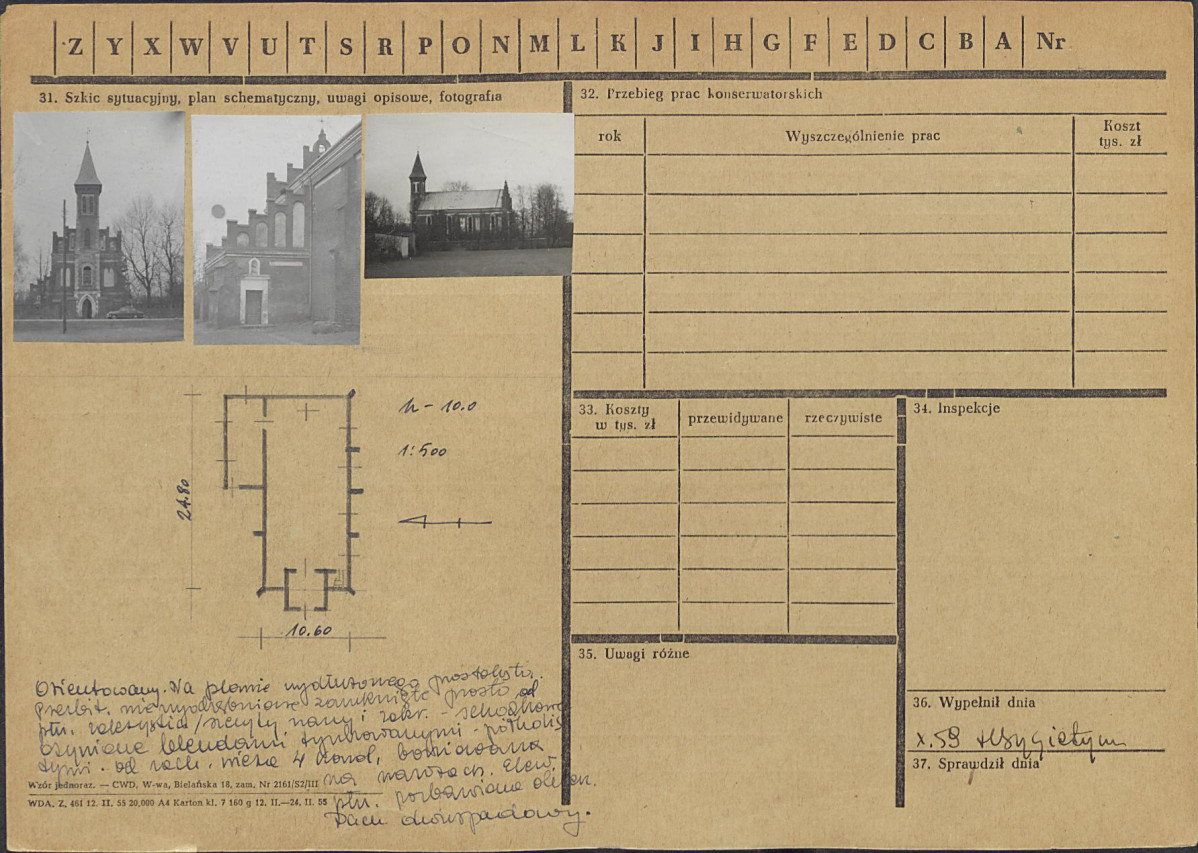 Z Y X W V U T S R P O N M L K J I H G F E D C B A Nr
31. Szkic sytuacyjny, plan schematyczny, uwagi opisowe, fotografia
32. Przebieg prac konserwatorskich
rok
Wyszczególnienie prac
Koszt
tys. zł
h – 10.0
1:500
24.80
10.60
33. Koszty
w tys. zł
przewidywane
rzeczywiste
34. Inspekcje
35. Uwagi różne
36. Wypełnił dnia
X.59
37. Sprawdził dnia
Orientowany. Na planie wydłużonego prostokąta.
Prezbit. niewyodrębnione zamknięte prosto, od
płn. zakrystia / szczyty nawy i zakr. - schodkowe
blendami tynkowanymi - półkolis
tymi. od zach. wieża 4 kond,
na narożach. Elew.
płn. pozbawiona okien.
Dach dwuspadowy.
Wzór jednoraz. — CWD, W-wa, Bielańska 18, zam, Nr 2161/S2/III
WDA, Z, 461 12. II. 55 20,000 A4 Karton kl. 7 160 g 12. II.—24, II. 55